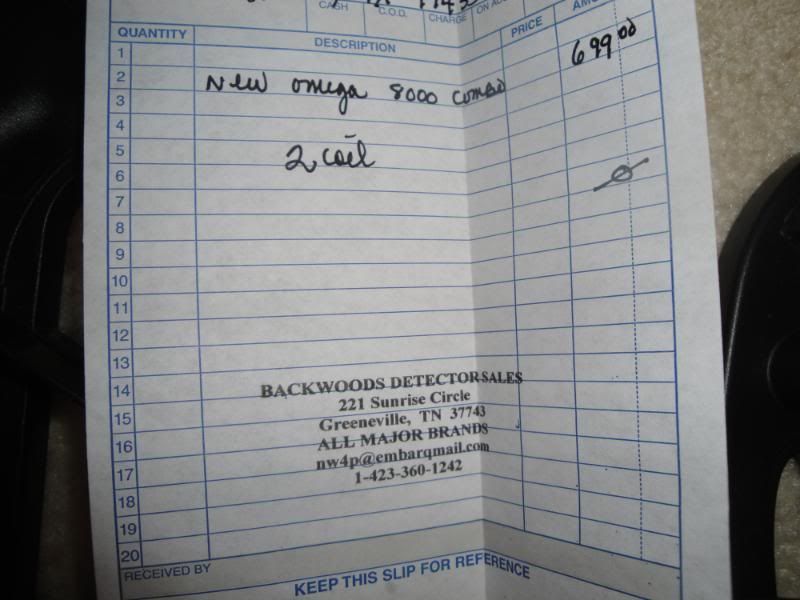 CASH C.O.D. CHARGE
QUANTITY DESCRIPTION PRICE
1
699 00
2
New Omega 8000 combo
3
4
5
2 coil
6
7
8
9
10
11
12
13
14
BACKWOODS DETECTOR SALES
221 Sunrise Circle
15
Greeneville, TN 37743
ALL MAJOR BRANDS
16
nw4p@embarqmail.com
17
1-423-360-1242
18
19
20
RECEIVED BY
KEEP THIS SLIP FOR REFERENCE